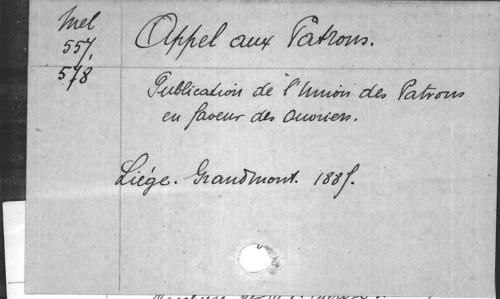 Mel
557,
578
Appel aux Patrons.
Publication de l'Union des Patrons
en faveur des Ouvriers.
Liége. Grandmont. 188